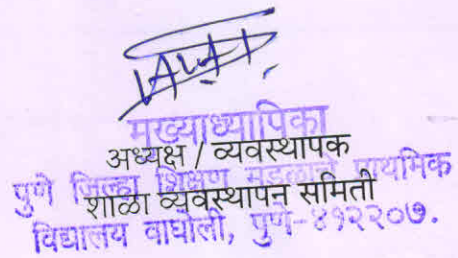 मुख्याध्यापिका
अध्यक्ष / व्यवस्थापक
पुणे जिल्हा शिक्षण मंडळाचे प्राथमिक
शाळा व्यवस्थापन समिती
विद्यालय वाघोली, पुणे-४१२२०७.